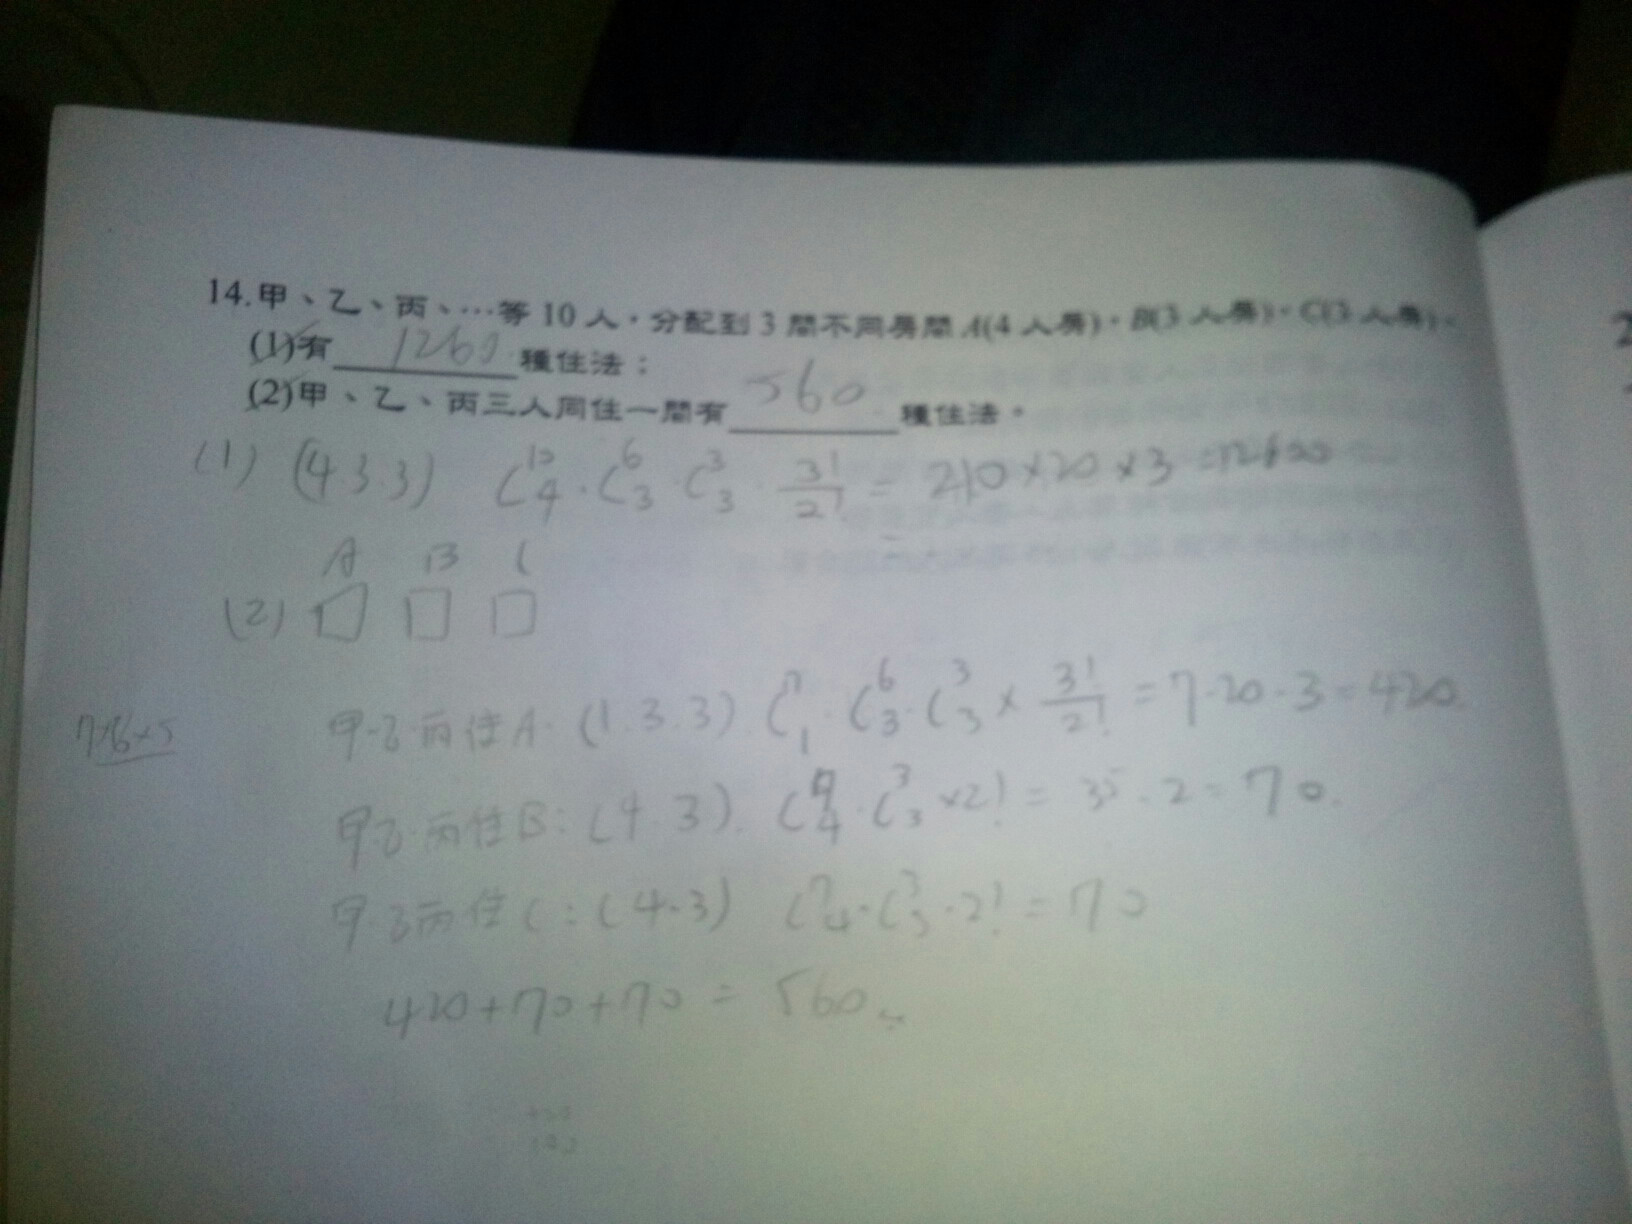 14.甲、乙、丙、…等10人,分配到3間不同房間A(4人房),B(3人房),C(3人房)。
(1)有 1260 種住法;
(2)甲、乙、丙三人同住一間有 560 種住法。
(1) (4 3.3) C¹⁰₄ · C⁶₃ · C³₃ · 3!/2! = 210×20×3=12600
A B C
(2) □ □ □
甲.乙.丙住A. (1.3.3). C⁷₁ · C⁶₃ · C³₃ × 3!/2! = 7·20·3=420.
7×6×5
甲乙.丙住B: (4.3). C⁷₄ · C³₃ ×2! = 35.2=70.
甲.乙丙住C: (4.3) C⁷₄ · C³₃ · 2! = 70
420+70+70 = 560